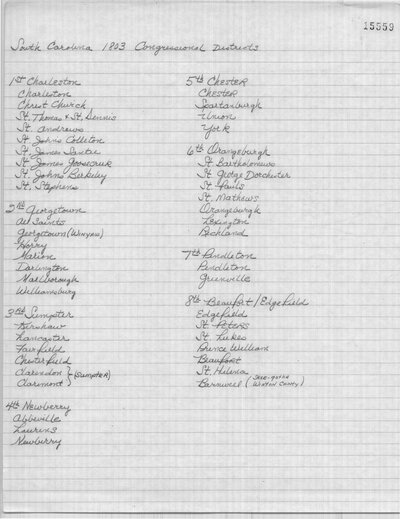 15559
South Carolina 1803 Congressional Districts
1st Charleston
Charleston
Christ Church
St. Thomas & St. Dennis
St. Andrews
St Johns Colleton
St James Santee
St James Goosecruk
St. Johns Berkeley
St. Stephens
2nd Georgetown
All Saints
Georgetown (Winyah)
Horry
Marion
Darlington
Marlborough
Williamsburg
3rd Sumpter
Kershaw
Lancaster
Fairfield
Chesterfield
Clarendon
Claremont
(Sumpter)
4th Newberry
Abbeville
Laurens
Newberry
5th Chester
Chester
Spartanburgh
Union
York
6th Orangeburgh
St Bartholomews
St George Dorchester
St Pauls
St. Mathews
Orangeburgh
Lexington
Richland
7th Pendleton
Pendleton
Greenville
8th Beaufort/Edgefield
Edgefield
St Peters
St. Lukes
Prince William
Beaufort
St. Helena
Barnwell (